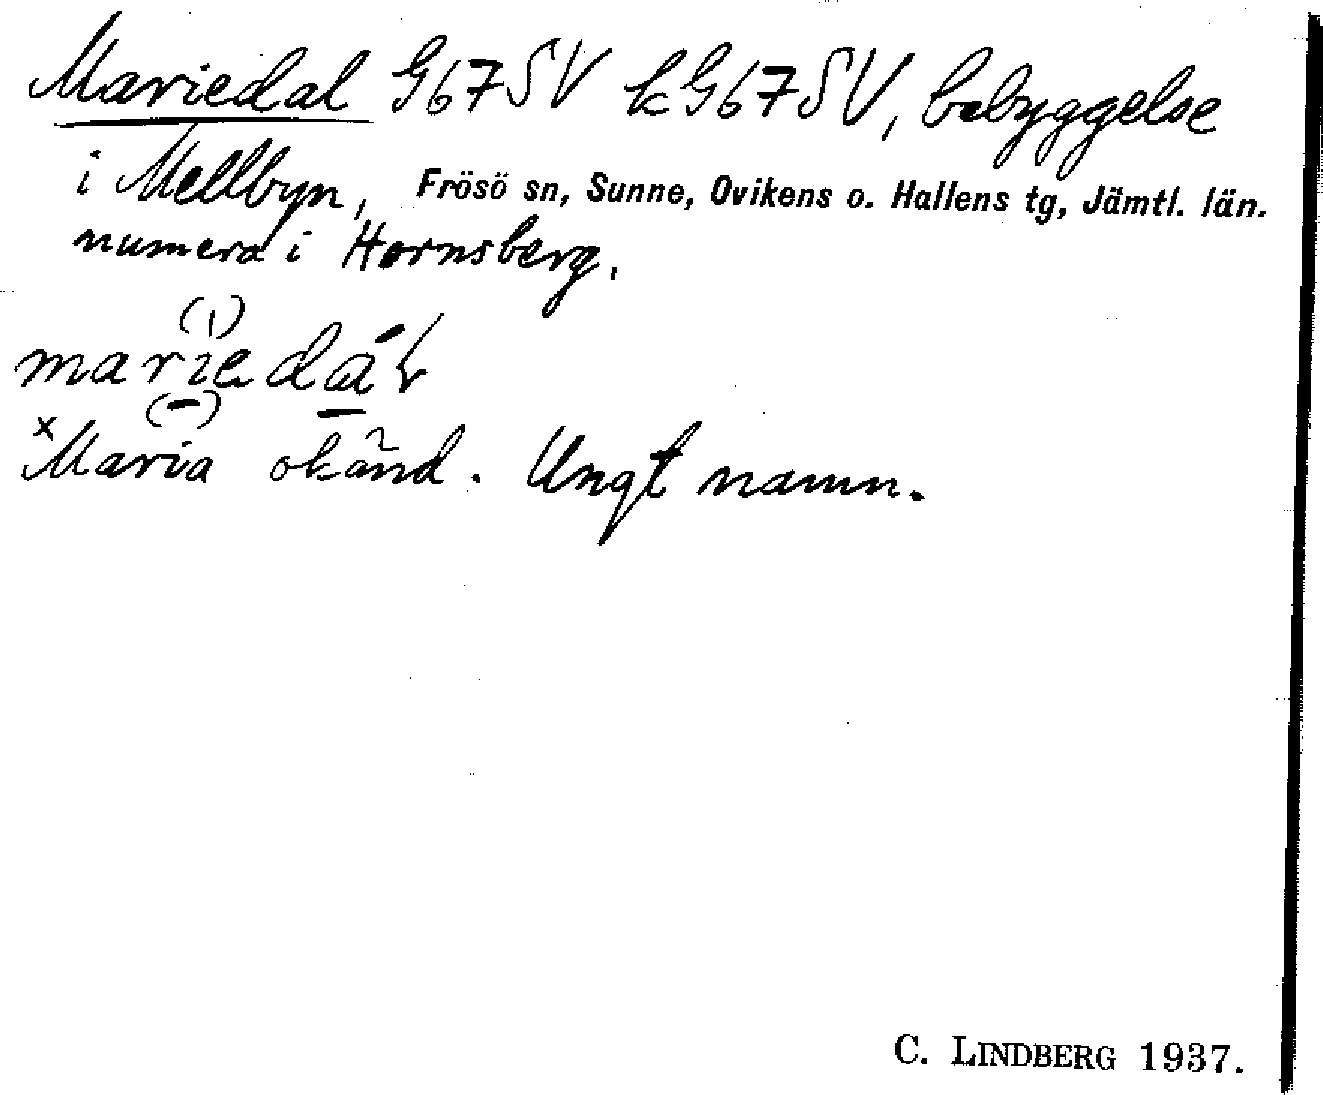 Mariedal G67SV kG67SV, bebyggelse
i Mellbyn, Frösö sn, Sunne, Ovikens o. Hallens tg, Jämtl. län.
numera i Hornsberg.
mariedál
ˣMaria okänd. Ungt namn.
C. LINDBERG 1937.